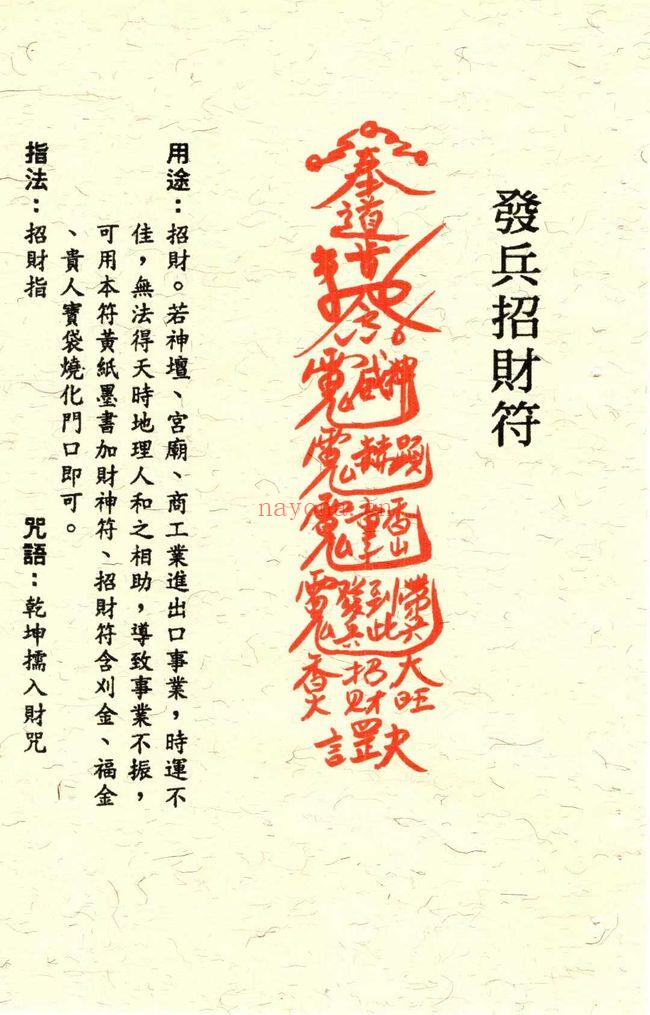 發兵招財符
奉道旨
令
神
威
顯
赫
香山
帶兵
到此
發兵
大旺
招財
香火
罡
用途：招財。若神壇、宮廟、商工業進出口事業，時運不
佳，無法得天時地理人和之相助，導致事業不振，
可用本符黃紙墨書加財神符、招財符含刈金、福金
、貴人寶袋燒化門口即可。
指法：招財指
咒語：乾坤擩入財咒